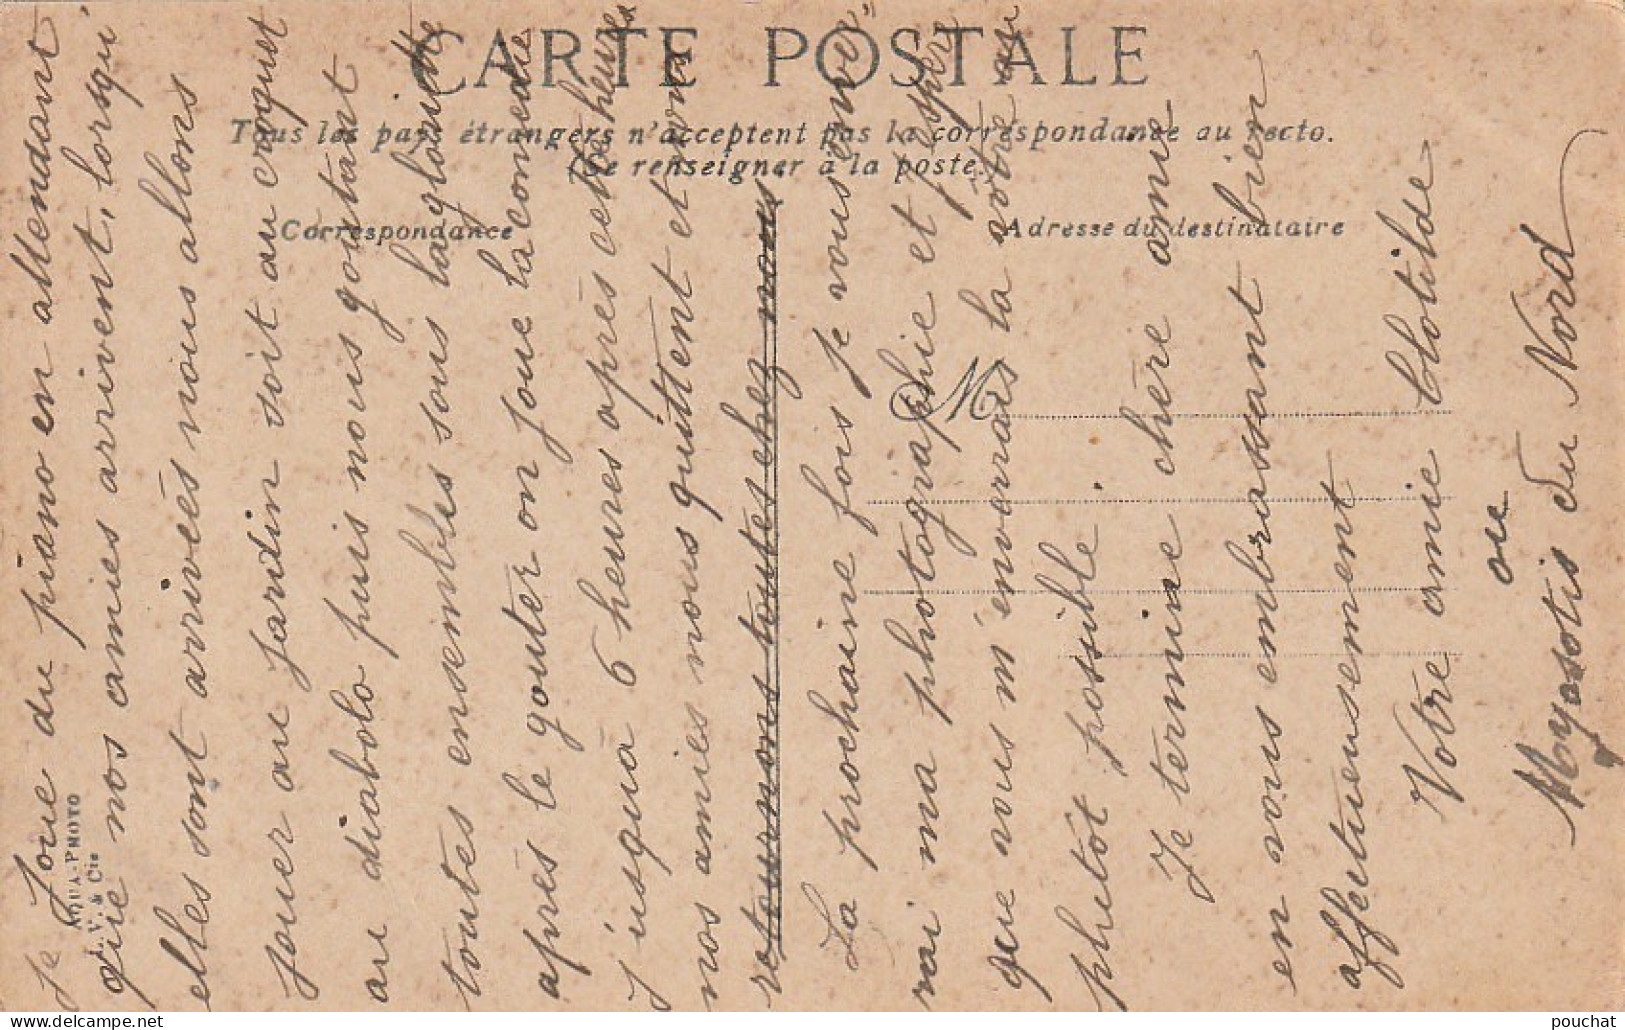 CARTE POSTALE
Tous les pays étrangers n'acceptent pas la correspondance au recto.
(Se renseigner à la poste.)
Correspondance
Adresse du destinataire
M
AQUA-PHOTO
L. V. & Cie
Je joue du piano en attendant
que nos amies arrivent, lorsqu'
elles sont arrivées nous allons
jouer au jardin soit au croquet
au diabolo puis nous goutant
toutes ensembles sous la gloriette
après le gouter on joue la comedie
j'usqua 6 heures après cette heures
nos amies nous quittent et nous
retournons toutes chez nous
La prochaine fois je vous enver-
rai ma photographie et j'espère
que vous m'enverrais la vôtre au
phutôt possible.
Je termine chère amie
en vous embrassant bien
affectueusement
Votre amie Clotilde
ou
Myosotis du Nord
pouchat